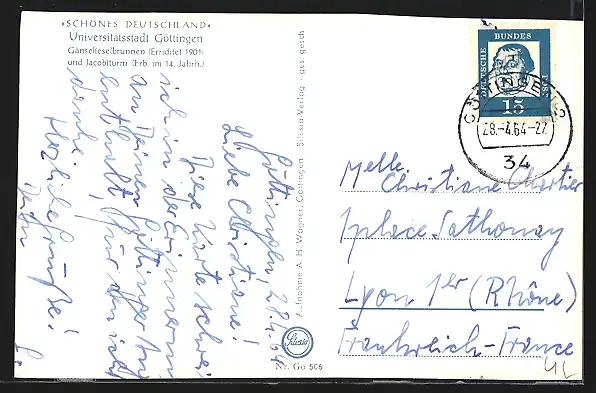 »SCHÖNES DEUTSCHLAND«
Universitätsstadt Göttingen
Gänselieselbrunnen (Errichtet 1901)
und Jacobiturm (Erb. im 14. Jahrh.)
Göttingen, 28.4.64
Liebe Christiane!
Diese Karte schrei
ich in der Erinnerung
an Deinen Göttinger Auf
enthalt, für den ich
danke.
Herzliche Grüße!
Dein
Aufnahme A. H. Wagner, Göttingen Silesia-Verlag - ges. gesch
Silesia
Nr. Gö 506
DEUTSCHE BUNDESPOST
15
GÖTTINGEN
28.-4.64-22
34
Melle.
Christiane Chartier
1 place Sathonay
Lyon 1er (Rhône)
Frankreich-France